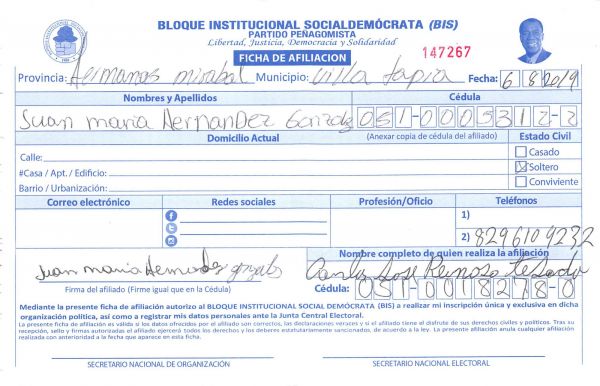 BLOQUE INSTITUCIONAL SOCIALDEMÓCRATA (BIS)
PARTIDO PEÑAGOMISTA
Libertad, Justicia, Democracia y Solidaridad
FICHA DE AFILIACION
147267
Provincia: Hermanas mirabal Municipio: villa tapia Fecha: 6 8 2019
Nombres y Apellidos Cédula
Juan maria Hernandez Gonzalez 051-0005312-2
Domicilio Actual (Anexar copia de cédula del afiliado) Estado Civil
Calle: Casado
#Casa / Apt. / Edificio: Soltero
Barrio / Urbanización: Conviviente
Correo electrónico Redes sociales Profesión/Oficio Teléfonos
1)
2) 8296109232
Nombre completo de quien realiza la afiliación
Juan maria Hernandez gonzalez Jose Reinoso
Firma del afiliado (Firme igual que en la Cédula) Cédula: 051-0018278-0
Mediante la presente ficha de afiliación autorizo al BLOQUE INSTITUCIONAL SOCIAL DEMÓCRATA (BIS) a realizar mi inscripción única y exclusiva en dicha
organización política, así como a registrar mis datos personales ante la Junta Central Electoral.
La presente ficha de afiliación es válida si los datos ofrecidos por el afiliado son correctos, las declaraciones veraces y si el afiliado tiene el disfrute de sus derechos civiles y políticos. Tras su
recepción, sello y firmas autorizadas el afiliado ejercerá todos los derechos y los deberes estatutariamente sancionados, de acuerdo a la ley. La presente afiliación anula cualquier afiliación
realizada con anterioridad a la fecha que aparece en esta ficha.
SECRETARIO NACIONAL DE ORGANIZACIÓN SECRETARIO NACIONAL ELECTORAL